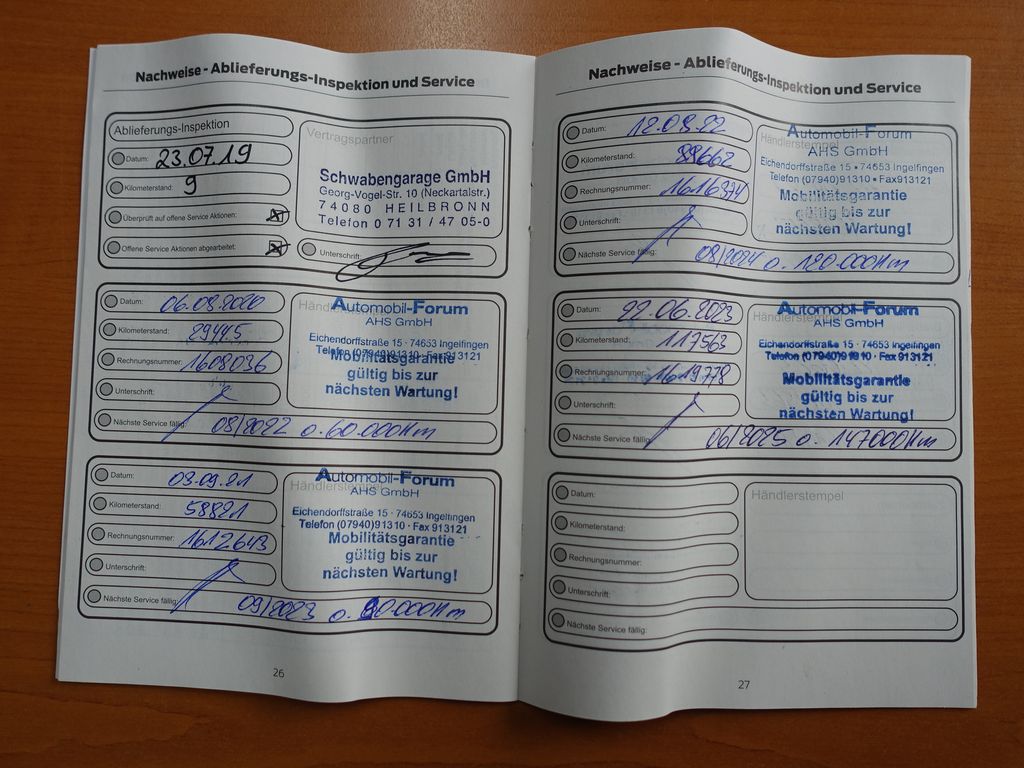 Nachweise - Ablieferungs-Inspektion und Service
Ablieferungs-Inspektion
Datum: 23.07.19
Kilometerstand: 9
Überprüft auf offene Service Aktionen:
Offene Service Aktionen abgearbeitet:
Vertragspartner
Schwabengarage GmbH
Georg-Vogel-Str. 10 (Neckartalstr.)
74080 HEILBRONN
Telefon 0 71 31 / 47 05-0
Unterschrift:
Datum: 06.08.2020
Kilometerstand: 29445
Rechnungsnummer: 1608036
Unterschrift:
Nächste Service fällig: 08/2022 o. 60.000Km
Automobil-Forum
AHS GmbH
Eichendorffstraße 15 · 74653 Ingelfingen
Telefon (07940)91310 · Fax 913121
Mobilitätsgarantie
gültig bis zur
nächsten Wartung!
Datum: 03.09.21
Kilometerstand: 58821
Rechnungsnummer: 1612643
Unterschrift:
Nächste Service fällig: 09/2023 o. 90.000Km
Händlerstempel
Automobil-Forum
AHS GmbH
Eichendorffstraße 15 · 74653 Ingelfingen
Telefon (07940)91310 · Fax 913121
Mobilitätsgarantie
gültig bis zur
nächsten Wartung!
26
Nachweise - Ablieferungs-Inspektion und Service
Datum: 12.08.22
Kilometerstand: 88662
Rechnungsnummer: 1616374
Unterschrift:
Nächste Service fällig: 08/2024 o. 120.000Km
Händlerstempel
Automobil-Forum
AHS GmbH
Eichendorffstraße 15 · 74653 Ingelfingen
Telefon (07940)91310 · Fax 913121
Mobilitätsgarantie
gültig bis zur
nächsten Wartung!
Datum: 22.06.2023
Kilometerstand: 117563
Rechnungsnummer: 1619778
Unterschrift:
Nächste Service fällig: 06/2025 o. 147000Km
Händlerstempel
Automobil-Forum
AHS GmbH
Eichendorffstraße 15 · 74653 Ingelfingen
Telefon (07940)91310 · Fax 913121
Mobilitätsgarantie
gültig bis zur
nächsten Wartung!
Datum:
Kilometerstand:
Rechnungsnummer:
Unterschrift:
Nächste Service fällig:
Händlerstempel
27